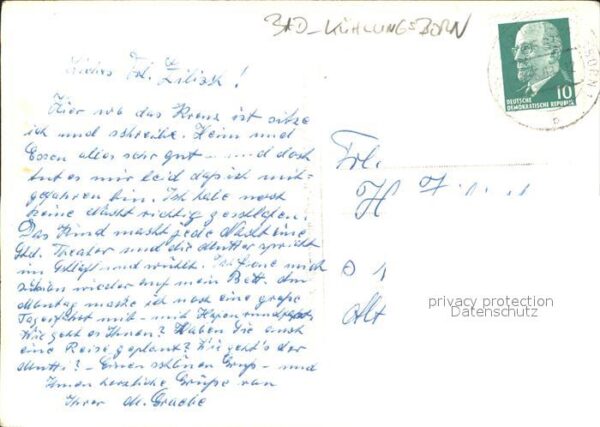 BAD-KÜHLUNGSBORN
Liebes Frl. Zilisch!
Hier wo das Kreuz ist sitze
ich und schreibe. Heim und
Essen alles sehr gut - und doch
tut es mir leid daß ich mit-
gefahren bin. Ich habe noch
keine Nacht richtig geschlafen.
Das Kind macht jede Nacht eine
Std. Theater und die Mutter spricht
im Schlaf und wühlt. Ich freue mich
schon wieder auf mein Bett. Am
Montag mache ich noch eine große
Tagesfahrt mit - mit Hafenrundfahrt
Wie geht es Ihnen? Haben Sie auch
eine Reise geplant? Wie geht's der
Mutti? - Einen schönen Gruß - und
Ihnen herzliche Grüße von
Ihrer M.
10
DEUTSCHE
DEMOKRATISCHE REPUBLIK
Frl.
H
Alt
privacy protection
Datenschutz